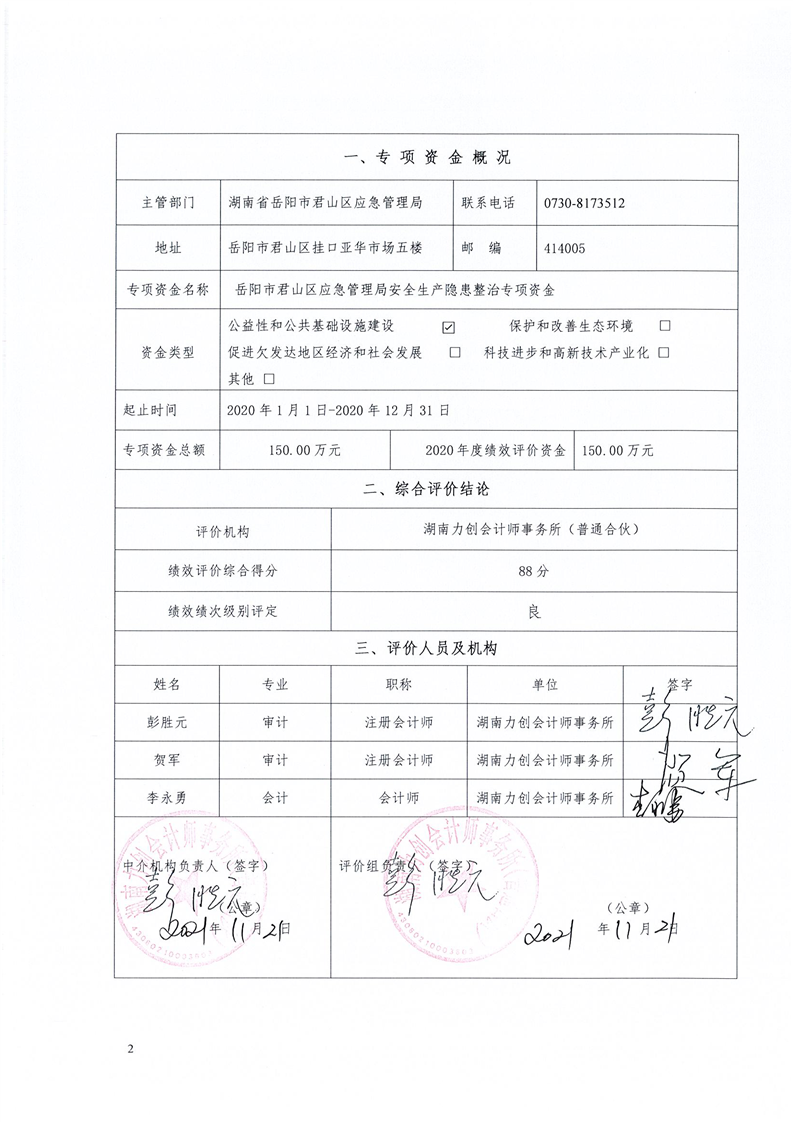 一、专项资金概况
主管部门 湖南省岳阳市君山区应急管理局 联系电话 0730-8173512
地址 岳阳市君山区挂口亚华市场五楼 邮 编 414005
专项资金名称 岳阳市君山区应急管理局安全生产隐患整治专项资金
公益性和公共基础设施建设 ☑ 保护和改善生态环境 □
资金类型 促进欠发达地区经济和社会发展 □ 科技进步和高新技术产业化 □
其他 □
起止时间 2020年1月1日-2020年12月31日
专项资金总额 150.00万元 2020年度绩效评价资金 150.00万元
二、综合评价结论
评价机构 湖南力创会计师事务所（普通合伙）
绩效评价综合得分 88分
绩效绩次级别评定 良
三、评价人员及机构
姓名 专业 职称 单位 签字
彭胜元 审计 注册会计师 湖南力创会计师事务所 彭胜元
贺军 审计 注册会计师 湖南力创会计师事务所 贺军
李永勇 会计 会计师 湖南力创会计师事务所
中介机构负责人（签字） 评价组负责人（签字）
彭胜元 彭胜元
（公章） （公章）
2021年11月21日 2021年11月21日
2